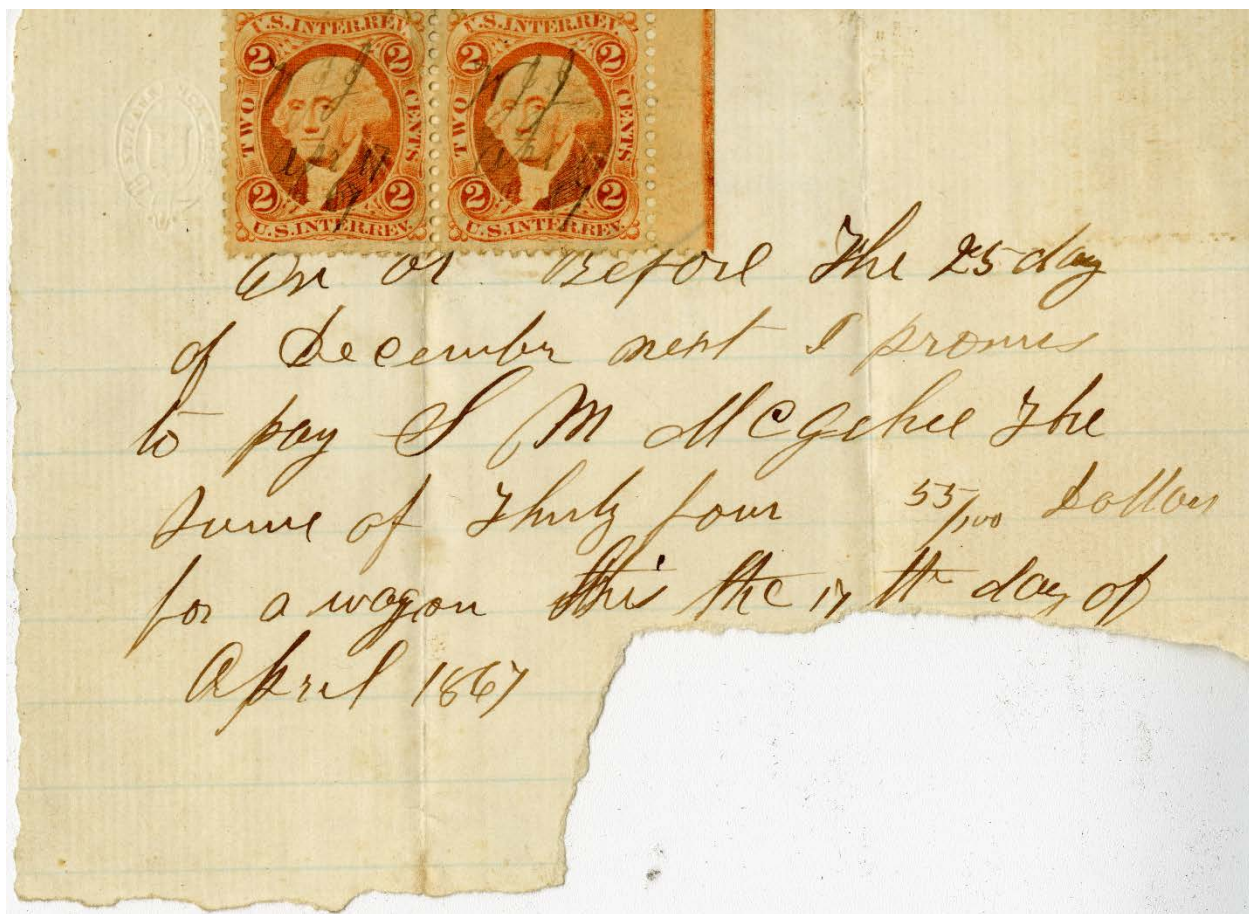 U.S.INTER.REV. U.S.INTER.REV.
2 2 2 2
TWO CENTS TWO CENTS
2 2 2 2
U.S.INTER.REV. U.S.INTER.REV.
On or Before The 25 day
of December next I promis
to pay S M McGehee The
sume of Thirty four 55/100 Dollars
for a wagon this the 17th day of
April 1867